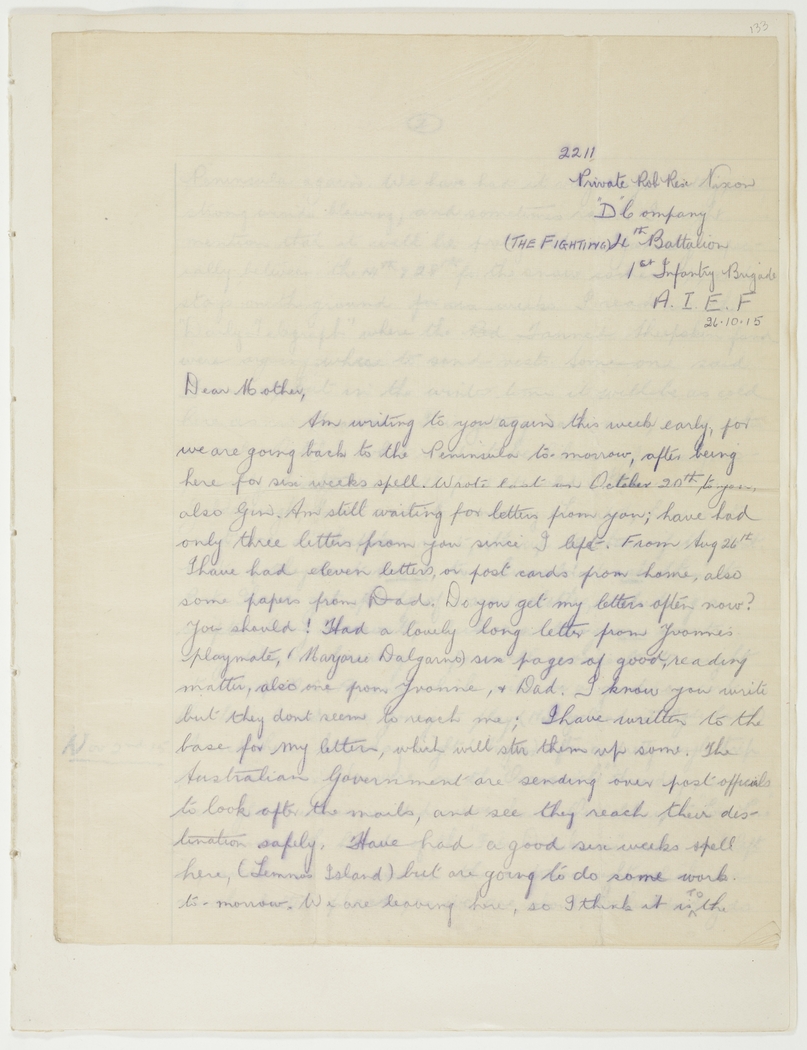 133
2211
Private Rob Rex Nixon
"D" Company
(THE FIGHTING) 4th Battalion
1st Infantry Brigade
A. I. E. F
26.10.15
Dear Mother,
Am writing to you again this week early, for
we are going back to the Peninsula to-morrow, after being
here for six weeks spell. Wrote last on October 20th, to you,
also Gin. Am still waiting for letters from you; have had
only three letters from you since I left. From Aug 26th
I have had eleven letters, or post cards from home, also
some papers from Dad. Do you get my letters often now?
You should! Had a lovely long letter from Yvonne's
playmate, (Marjorie Dalgarno) six pages of good, reading
matter, also one from Yvonne, & Dad. I know you write
but they dont seem to reach me; I have written to the
base for my letters, which will stir them up some. The
Australian Government are sending over post officials
to look after the mails, and see they reach their des-
tination safely. Have had a good six weeks spell
here, (Lemnos Island) but are going to do some work
to-morrow. We are leaving here, so I think it is TO the